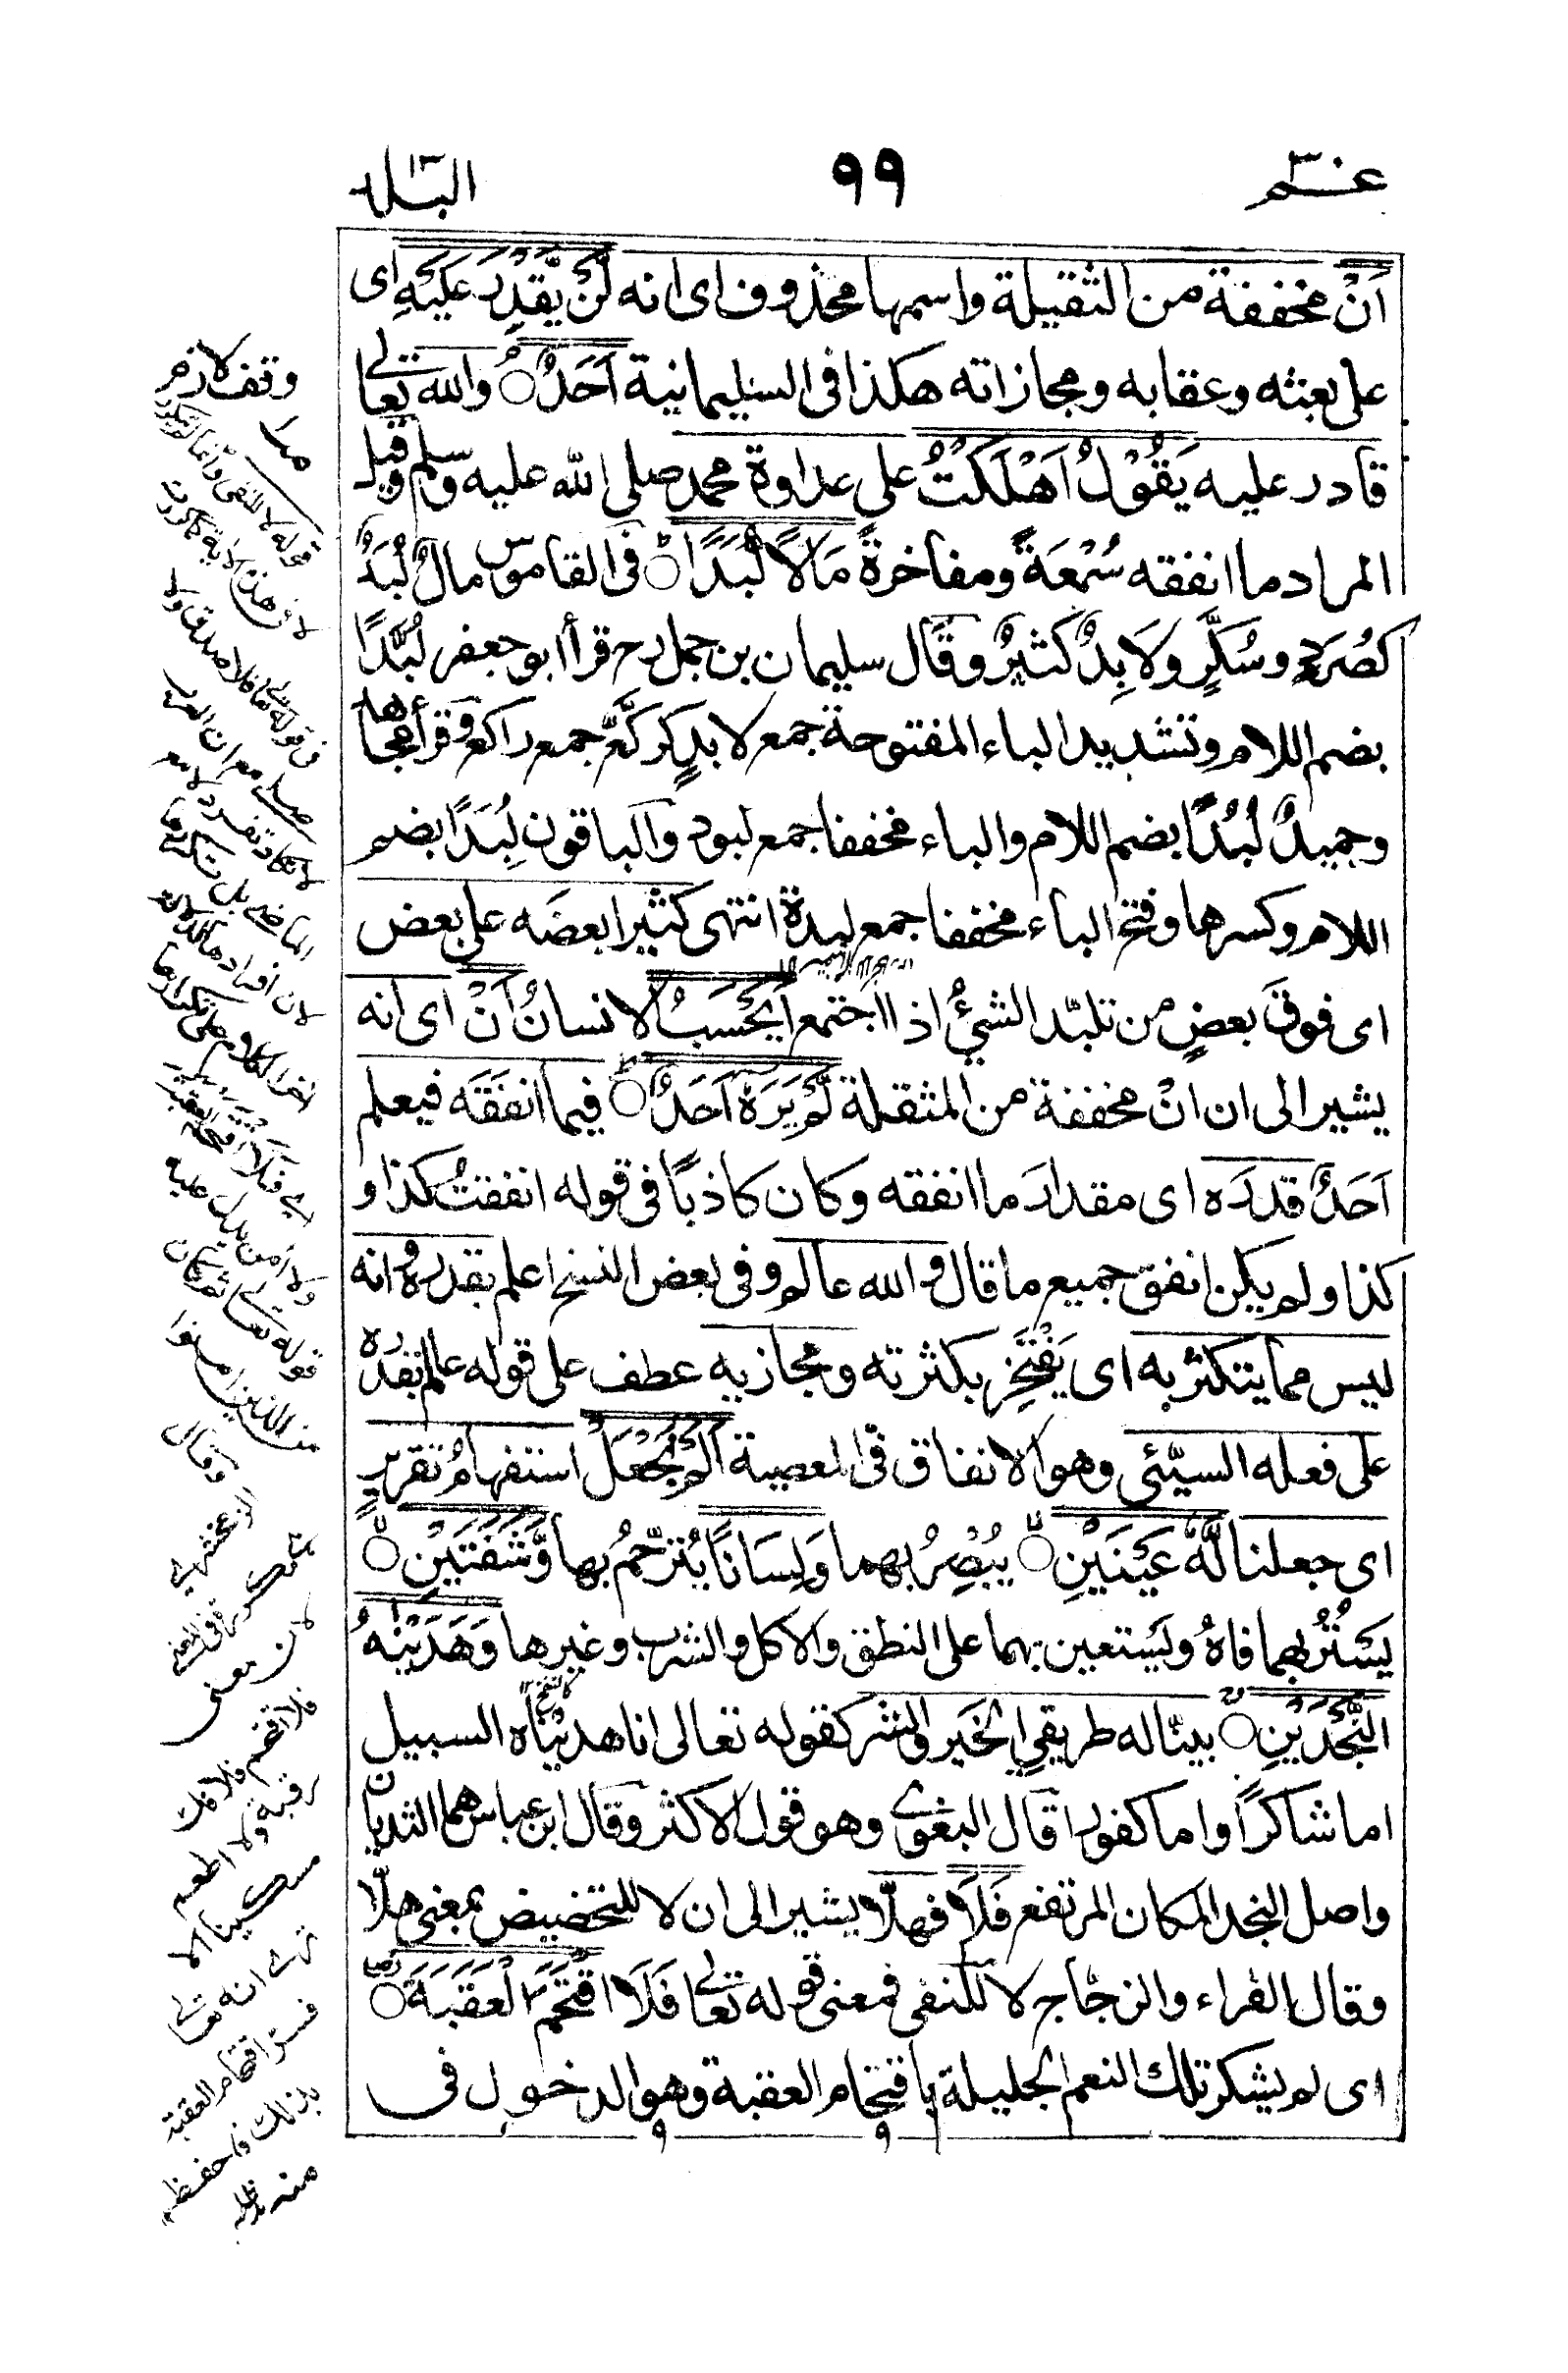 عـم ٣٠
٩٩
البلد
اَنْ مخففة من الثقيلة واسمها محذوف اى انه لَنْ يَّقْدِرَ عَلَيْهِ اى
على بعثه وعقابه ومجازاته هكذا فى السليمانية اَحَدٌ ۘ والله تعالى
قادر عليه يَقُوْلُ اَهْلَكْتُ على عداوة محمد صلى الله عليه وسلم وقيل
المراد ما انفقه سُمْعَةً ومفاخرةً مَالًا لُّبَدًا ؕ فى القاموس مالٌ لُبَدٌ
كصُرَدٍ وسُكَّرٍ ولَابِدٌ كثيرٌ وقال سليمان بن جمل رح قرأ ابو جعفر لُبَّدًا
بضم اللام وتشديد الباء المفتوحة جمع لابدٍ كركَّعٍ جمع راكع وقرأ مجاهد
وحميدٌ لُبُدًا بضم اللام والباء مخففا جمع لبود والباقون لِبَدًا بضم
اللام وكسرها وفتح الباء مخففا جمع لبدة انتهى كثيرا بعضَه على بعض
اى فوقَ بعضٍ من تلبّد الشيءُ اذا اجتمع اَيَحْسَبُ الانسانُ اَنْ اى انه
يشير الى ان انْ مخففة من المثقلة لَّمْ يَرَهٗ اَحَدٌ ؕ فيما انفَقَه فيعلم
اَحَدٌ قدرَه اى مقدارَ ما انفقه وكان كاذبًا فى قوله انفقتُ كذا و
كذا ولم يكن انفق جميع ما قال والله عالم وفى بعض النسخ اعلم بقدره وانه
ليس مما يتكثر به اى يَفْتَخِر بكثرته ومجازيه عطف على قوله عالم بقدره
على فعله السيّئى وهو الانفاق فى المعصية اَلَمْ نَجْعَلْ استفهامُ تقريرٍ
اى جعلنا لَّهٗ عَيْنَيْنِ ۙ يُبْصِرُ بهما وَلِسَانًا يُترجّمُ بها وَّشَفَتَيْنِ ۙ
يَسْتُرُ بهما فاهُ ويَستعين بهما على النطق والاكل والشرب وغيرها وَهَدَيْنٰهُ
النَّجْدَيْنِ ۚ بينّا له طريقي الخير والشر كقوله تعالى انا هديناه السبيل
اما شاكرًا واما كفورا قال البغوى وهو قول الاكثر وقال ابن عباس هما الثديان
واصل النجد المكان المرتفع فَلَا فهلّا يشير الى ان لا للتحضيض بمعنى هلّا
وقال الفراء والزجّاج لا للنفى فمعنى قوله تعالى فَلَا اقْتَحَمَ الْعَقَبَةَ ۖ
اى لم يشكر تلك النعم الجليلة باقتحام العقبة وهو الدخول فى
وقف لازم
قوله لا للنفى وانما لم تكرر
وقال
الزمخشرى
لان معنى
فلا اقتحم فلا فك
رقبة ولا اطعم
مسكينا الا
ترى انه تعالى
فسر اقتحام العقبة
بذلك فاحفظ
منه